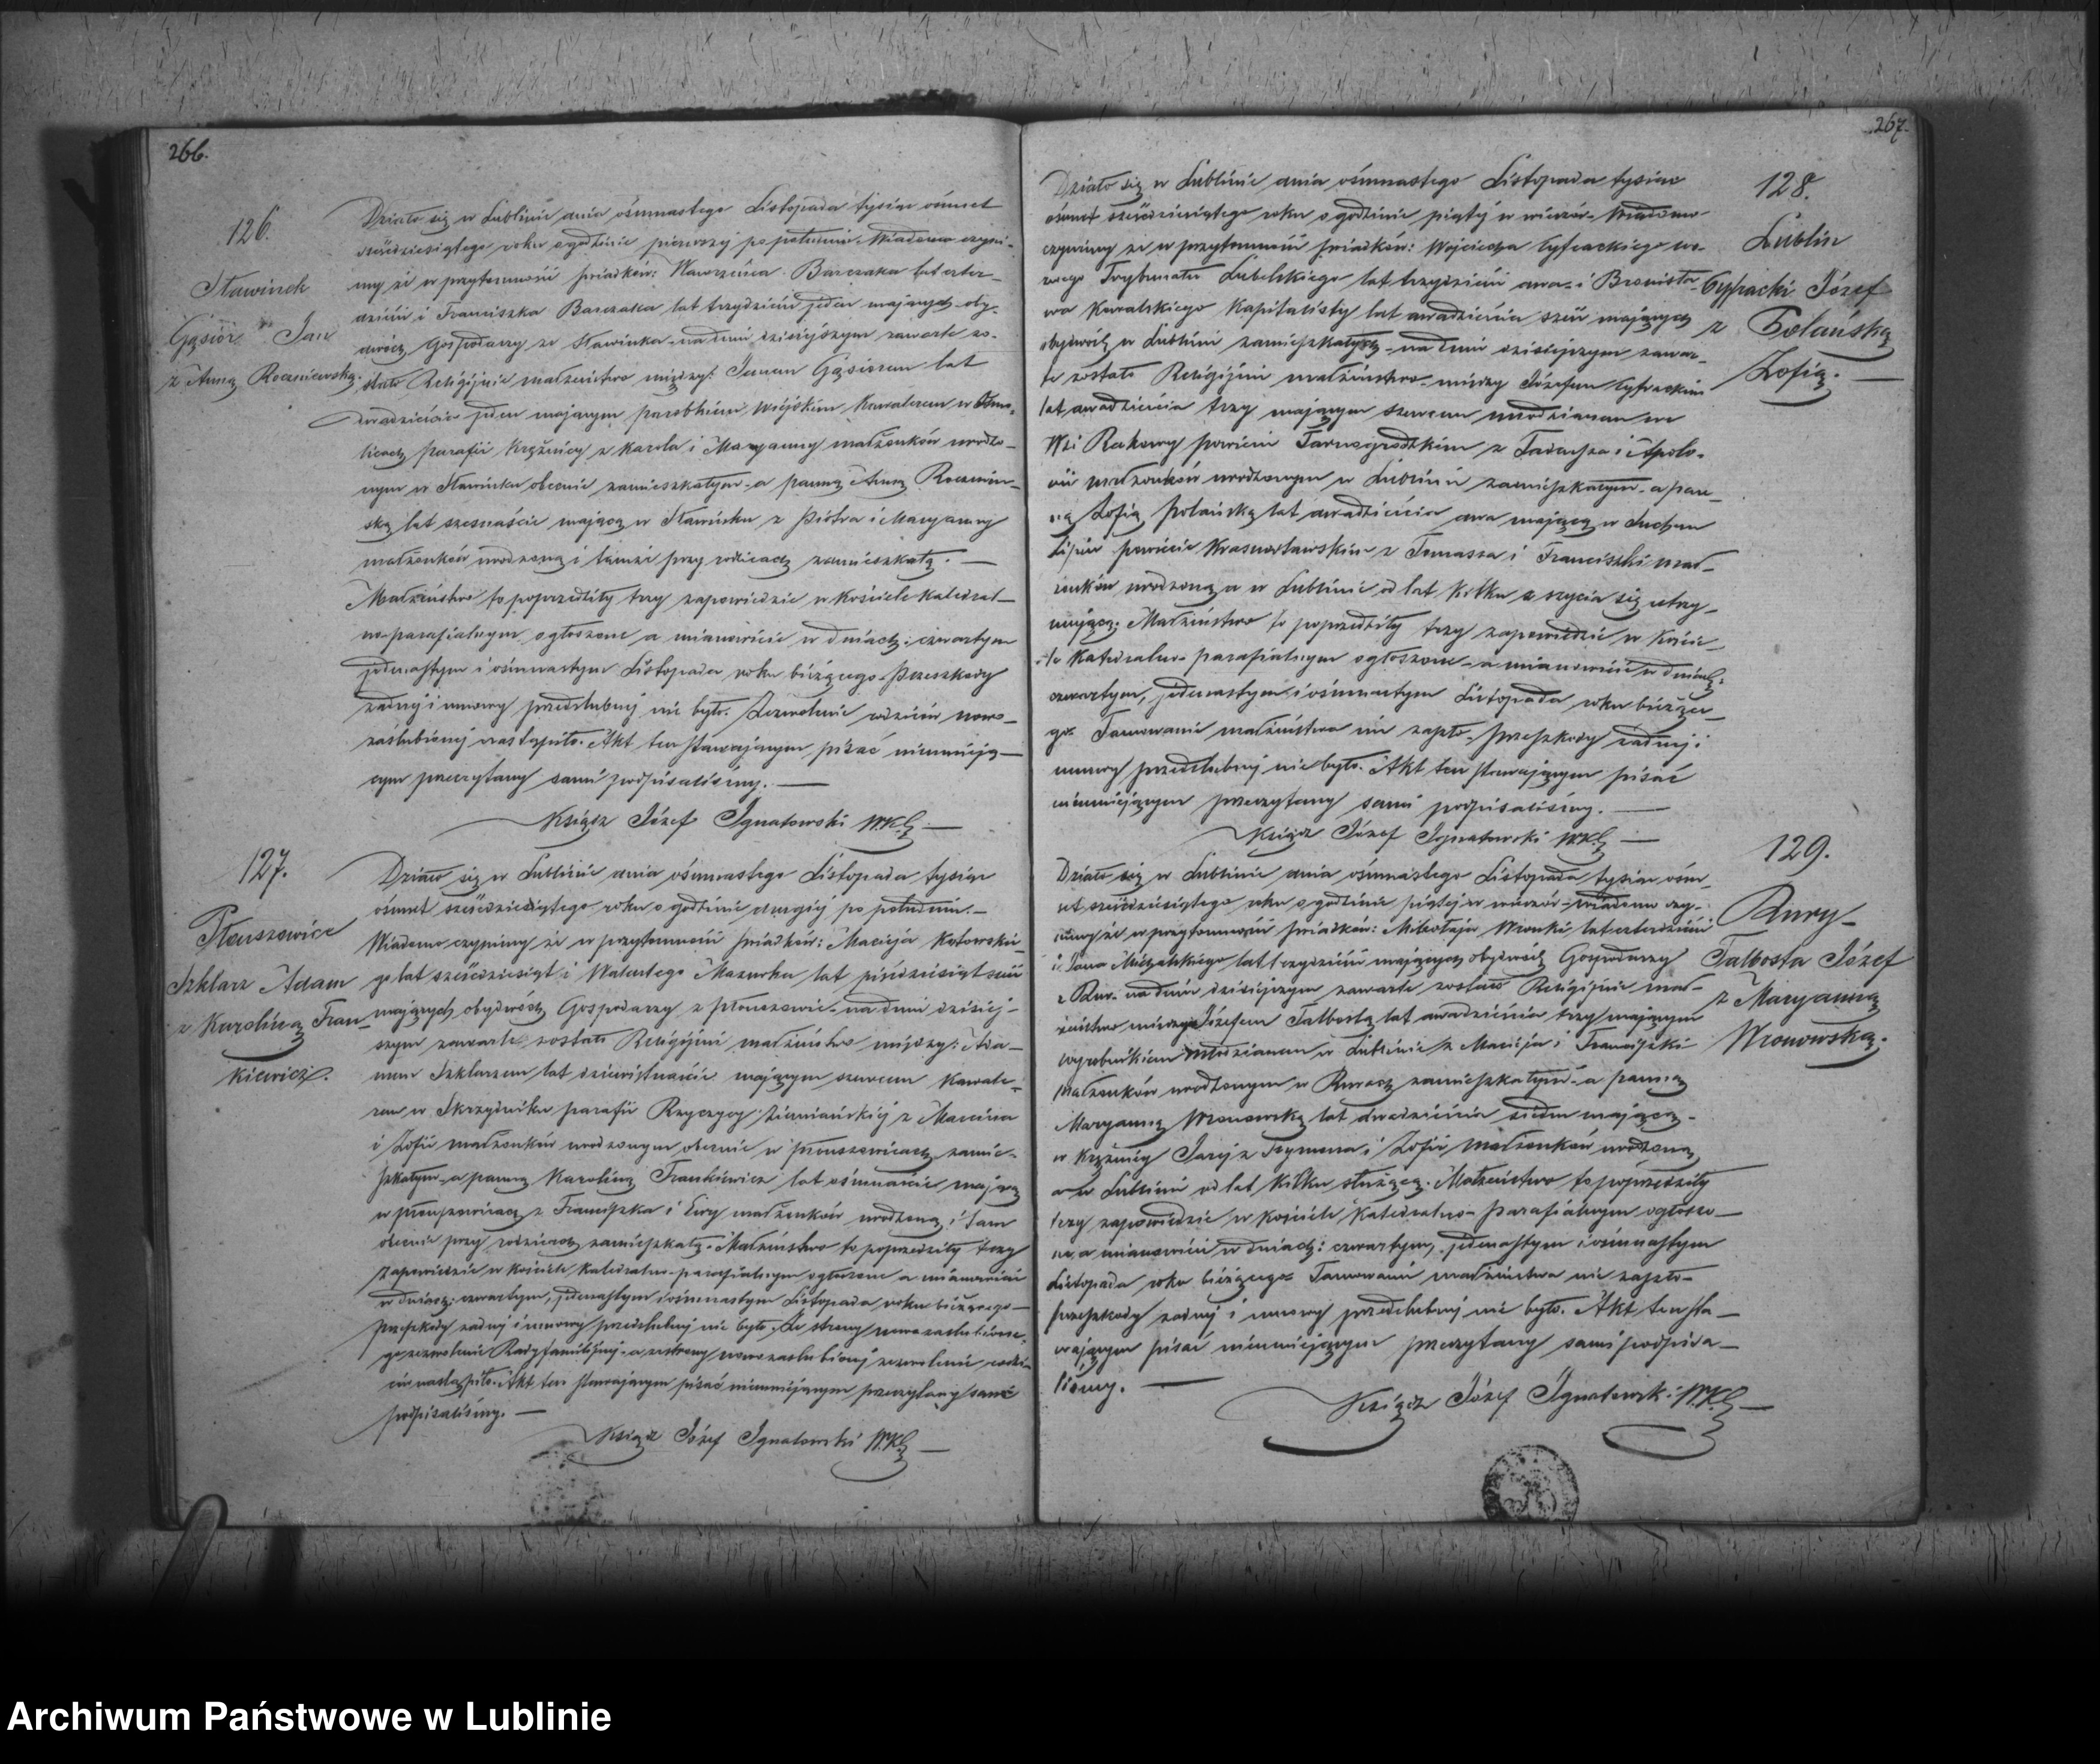 266.
126.
Sławinek
Gąsior Jan
z Anną Roczniewską.
Działo się w Lublinie dnia ośmnastego Listopada tysiąc ośmset
sześćdziesiątego roku o godzinie pierwszej po południu. Wiadomo czyni-
my że w przytomności świadków: Wawrzeńca Barczaka lat czter-
dzieści i Franciszka Barczaka lat trzydzieści jeden mających oby-
dwóch Gospodarzy ze Sławinka na dniu dzisiejszym zawarte zo-
stało Religijnie małżeństwo między: Janem Gąsiorem lat
dwadzieścia jeden mającym parobkiem wiejskim Kawalerem w
licach parafii Krężnicy z Karola i Maryanny małżonków urodzo-
nym w Sławinku obecnie zamieszkałym a panną Anną
ską lat szesnaście mającą w Sławinku z Piotra i Maryanny
małżonków urodzoną i tamże przy rodzicach zamieszkałą. —
Małżeństwo to poprzedziły trzy zapowiedzie w Kościele Katedral-
no-parafialnym ogłoszone a mianowicie w dniach: czwartym
jedenastym i ośmnastym Listopada roku bieżącego. Przeszkody
żadnej i umowy przedślubnej nie było. Zezwolenie rodziców nowo-
zaślubionej nastąpiło. Akt ten stawającym pisać nieumieją-
cym przeczytany sami podpisaliśmy. —
Ksiądz Józef Ignatowski W.K.L. —
127.
Płouszowice
Szklarz Adam
z Karoliną Fran-
kiewicz.
Działo się w Lublinie dnia ośmnastego Listopada tysiąc
ośmset sześćdziesiątego roku o godzinie drugiej po południu. —
Wiadomo czynimy że w przytomności świadków: Macieja Kotowskie-
go lat sześćdziesiąt i Walentego Mazurka lat pięćdziesiąt sześć
mających obydwóch Gospodarzy z Płouszowic na dniu dzisiej-
szym zawarte zostało Religijnie małżeństwo między: Ada-
mem Szklarzem lat dziewiętnaście mającym szewcem Kawale-
rem w Skrzyniku parafii Rzyczycy Ziemiańskiej z Marcina
i Zofii małżonków urodzonym obecnie w Płouszowicach zamie-
szkałym a panną Karoliną Frankiewicz lat ośmnaście mającą
w Płouszowicach z Franciszka i Ewy małżonków urodzoną i tam
obecnie przy rodzicach zamieszkałą. Małżeństwo to poprzedziły trzy
zapowiedzie w Kościele Katedralno-parafialnym ogłoszone a mianowicie
w dniach: czwartym, jedenastym i ośmnastym Listopada roku bieżącego
przeszkody żadnej i umowy przedślubnej nie było. Ze strony nowozaślubione-
go zezwolenie Rady familijnej a ze strony nowozaślubionej zezwolenie rodzi-
ców nastąpiło. Akt ten stawającym pisać nieumiejącym przeczytany sami
podpisaliśmy. —
Ksiądz Józef Ignatowski W.K.L. —
267.
128.
Lublin
Cyfracki Józef
z Polańską
Zofią. —
Działo się w Lublinie dnia ośmnastego Listopada tysiąc
ośmset sześćdziesiątego roku o godzinie piątej w wieczór. Wiadomo
czynimy że w przytomności świadków: Wojciecha Cyfrackiego wo-
źnego Trybunału Lubelskiego lat trzydzieści dwa i Bronisła-
wa Kowalskiego Kapitalisty lat dwadzieścia sześć mających
obydwóch w Lublinie zamieszkałych na dniu dzisiejszym zawar-
te zostało Religijnie małżeństwo między Józefem Cyfrackim
lat dwadzieścia trzy mającym szewcem młodzianem we
Wsi Rakowy powiecie Tarnogrodzkim z Tadeusza i Apolo-
nii małżonków urodzonym w Lublinie zamieszkałym a pan-
ną Zofią Polańską lat dwadzieścia dwa mającą w Suchym
Lipiu powiecie Krasnostawskim z Tomasza i Franciszki mał-
żonków urodzoną a w Lublinie od lat kilku z szycia się utrzy-
mującą. Małżeństwo to poprzedziły trzy zapowiedzie w Koście-
le Katedralno-parafialnym ogłoszone a mianowicie w dniach:
czwartym, jedenastym i ośmnastym Listopada roku bieżące-
go. Tamowanie małżeństwa nie zaszło. Przeszkody żadnej i
umowy przedślubnej nie było. Akt ten stawającym pisać
nieumiejącym przeczytany sami podpisaliśmy. —
Ksiądz Józef Ignatowski W.K.L. —
129.
Rury
Talbosta Józef
z Maryanną
Wronowską.
Działo się w Lublinie dnia ośmnastego Listopada tysiąc ośm-
set sześćdziesiątego roku o godzinie piątej w wieczór. Wiadomo czy-
nimy że w przytomności świadków: Mikołaja Wronki lat czterdzieści
i Jana Michalskiego lat trzydzieści mających obydwóch Gospodarzy
z Rur na dniu dzisiejszym zawarte zostało Religijnie mał-
żeństwo między Józefem Talbostą lat dwadzieścia trzy mającym
wyrobnikiem młodzianem w Lublinie z Macieja i Franciszki
małżonków urodzonym w Rurach zamieszkałym a panną
Maryanną Wronowską lat dwadzieścia siedm mającą
w Krężnicy Jarej z Szymona i Zofii małżonków urodzoną
a w Lublinie od lat kilku służącą. Małżeństwo to poprzedziły
trzy zapowiedzie w Kościele Katedralno-parafialnym ogłoszo-
ne a mianowicie w dniach: czwartym, jedenastym i ośmnastym
Listopada roku bieżącego. Tamowanie małżeństwa nie zaszło
przeszkody żadnej i umowy przedślubnej nie było. Akt ten sta-
wającym pisać nieumiejącym przeczytany sami podpisa-
liśmy. —
Ksiądz Józef Ignatowski W.K.L. —
Archiwum Państwowe w Lublinie